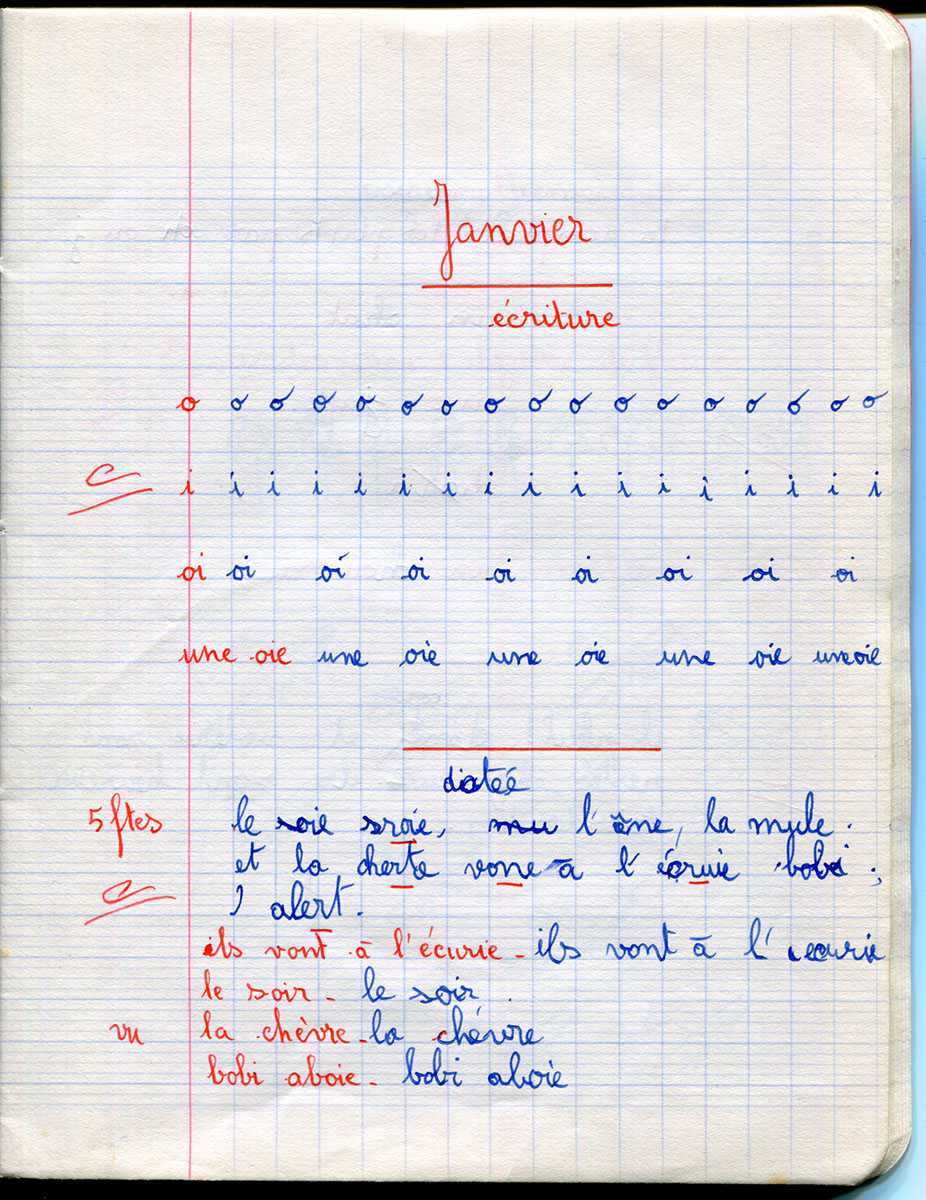 Janvier
écriture
o o o o o o o o o o o o o o o o o
i i i i i i i i i i i i i i i i i
oi oi oi oi oi oi oi oi oi
une oie une oie une oie une oie une oie
dictéé
5 ftes le soie sroie, l'âne, la mule.
et la cherte vone à l'écruie bobi ;
alert.
ils vont à l'écurie - ils vont à l'écurie
le soir - le soir.
vu la chèvre - la chévre
bobi aboie - bobi aboie